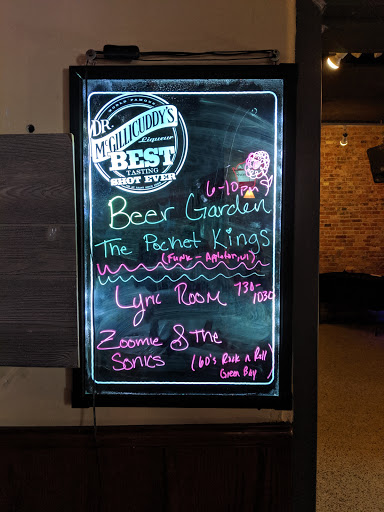 WORLD FAMOUS
DR. McGILLICUDDY'S
Liqueur
BEST
TASTING
SHOT EVER
6-10pm
Beer Garden
The Pocket Kings
(Funk - Appleton, WI)
Lyric Room 730-
1030
Zoomie & The
Sonics (60's Rock n Roll
Green Bay)